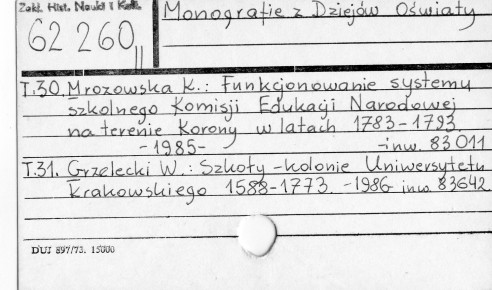 Zakł. Hist. Nauki i Tech.
Monografie z Dziejów Oświaty
62 260 II
T.30. Mrozowska K.: Funkcjonowanie systemu
szkolnego Komisji Edukacji Narodowej
na terenie Korony w latach 1783-1793.
-1985- -inw. 83011
T.31. Grzelecki W.: Szkoły-kolonie Uniwersytetu
Krakowskiego 1588-1773. -1986- inw. 83642
DUJ 897/73. 15000